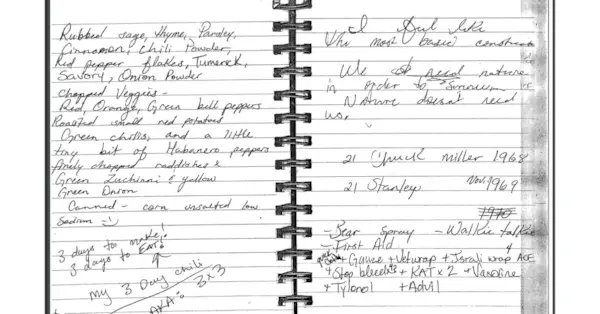 Rubbed sage, thyme, Parsley,
Cinnamon, Chili Powder,
Red pepper flakes, Tumerick,
Savory, Onion Powder
Chopped Veggies -
Red, Orange, Green bell peppers
Roasted small red potatoes
Green chilis, and a little
tiny bit of Habanero peppers
finely chopped raddishes &
Green Zuchinni & yellow
Green Onion
Canned - corn unsalted low
Sodium :)
3 days to make!
3 days to Eat!
my 3 Day chili
AKA: 3x3
I feel like
the most basic
We need nature
in order to
Nature doesn't need
us.
21 Chuck Miller 1968
21 Stanley Nov, 1969
1970
- Bear Spray - Walkie talkie
- First Aid
+ Gauze + Vetwrap + Israli wrap ACE
+ Stop bleed + KAT x 2 + Vaseline
+ Tylonol + Advil